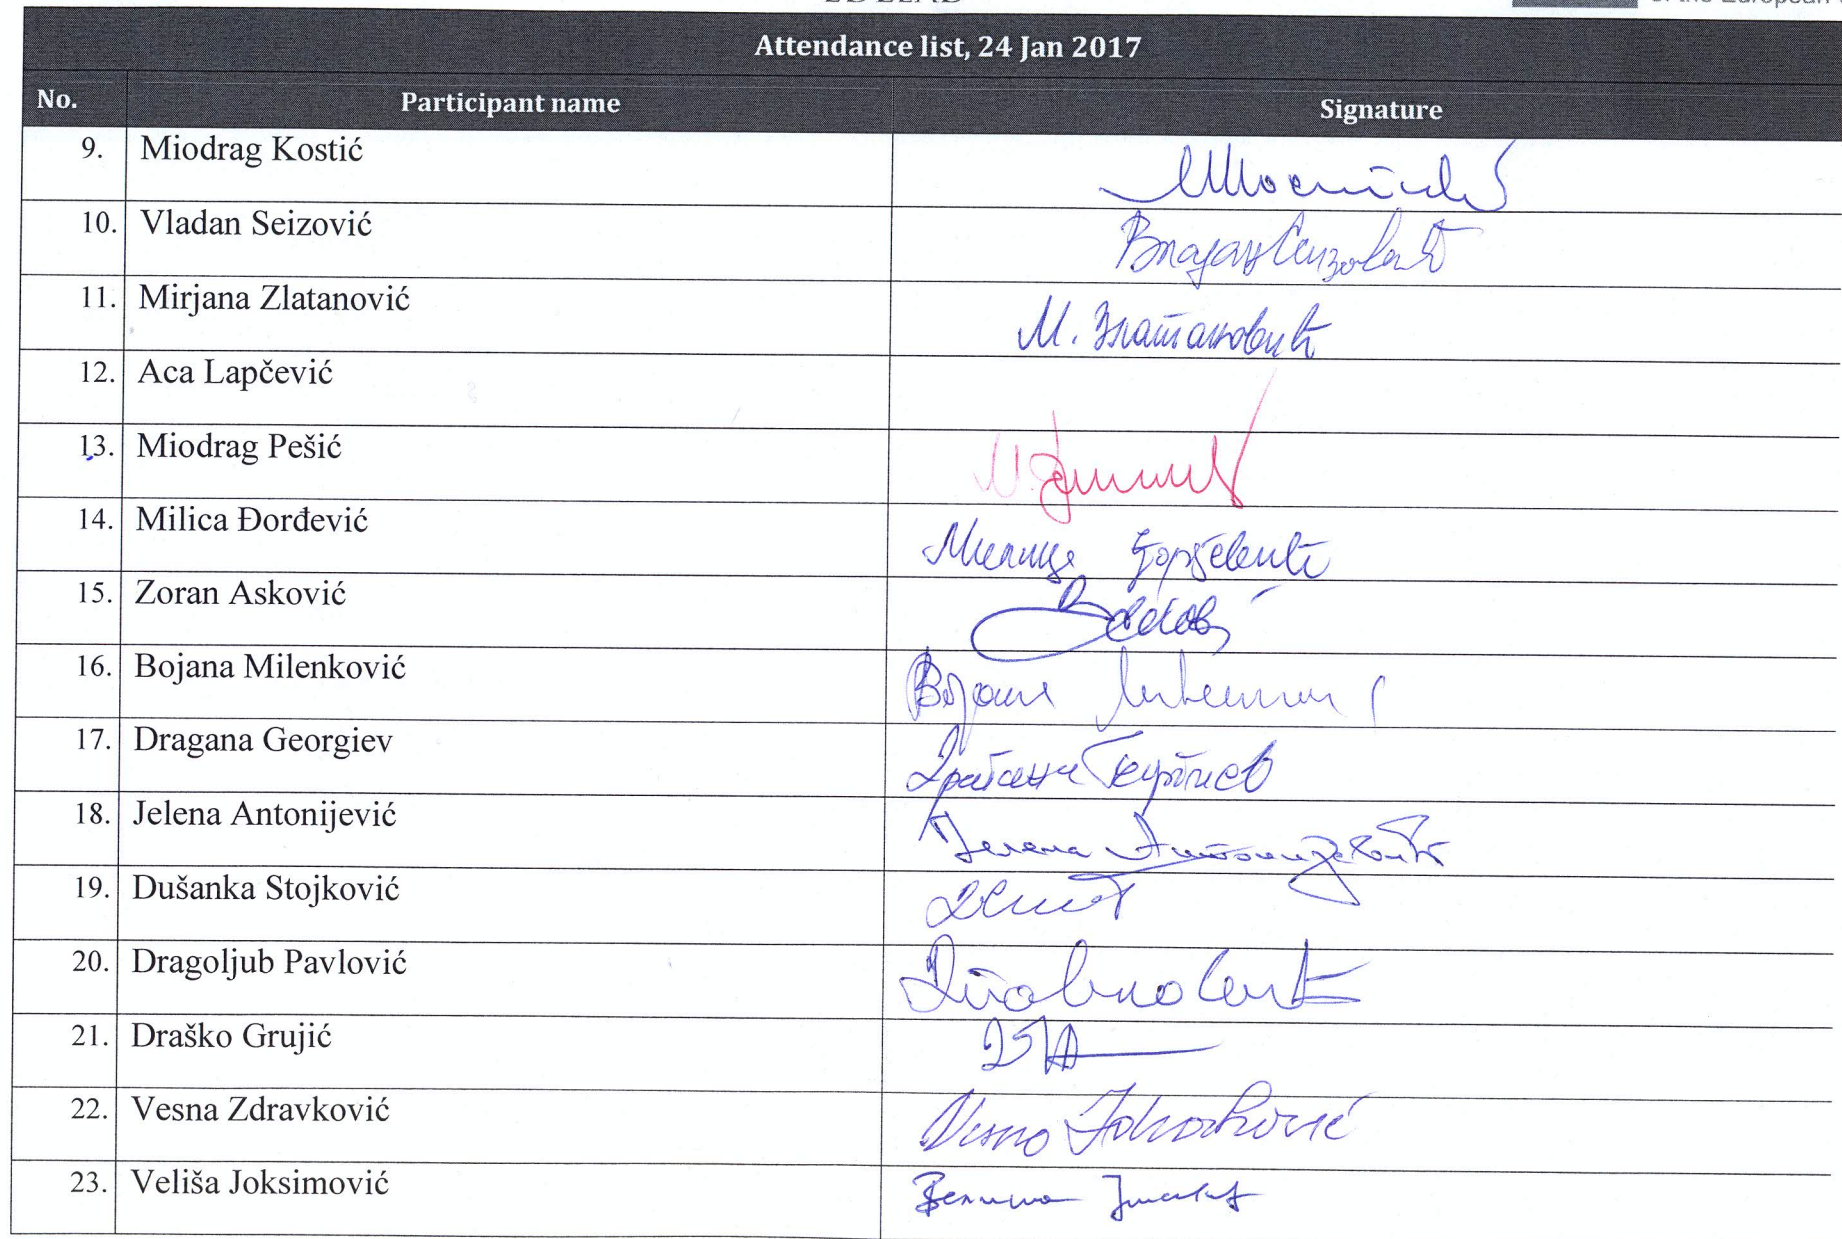 Attendance list, 24 Jan 2017
No. Participant name Signature
9. Miodrag Kostić
10. Vladan Seizović Владан Сеизовић
11. Mirjana Zlatanović М. Златановић
12. Aca Lapčević
13. Miodrag Pešić
14. Milica Đorđević Милица Ђорђевић
15. Zoran Asković
16. Bojana Milenković Бојана
17. Dragana Georgiev Драгана Георгиев
18. Jelena Antonijević Јелена Антонијевић
19. Dušanka Stojković
20. Dragoljub Pavlović
21. Draško Grujić
22. Vesna Zdravković Vesna Zdravković
23. Veliša Joksimović Велиша